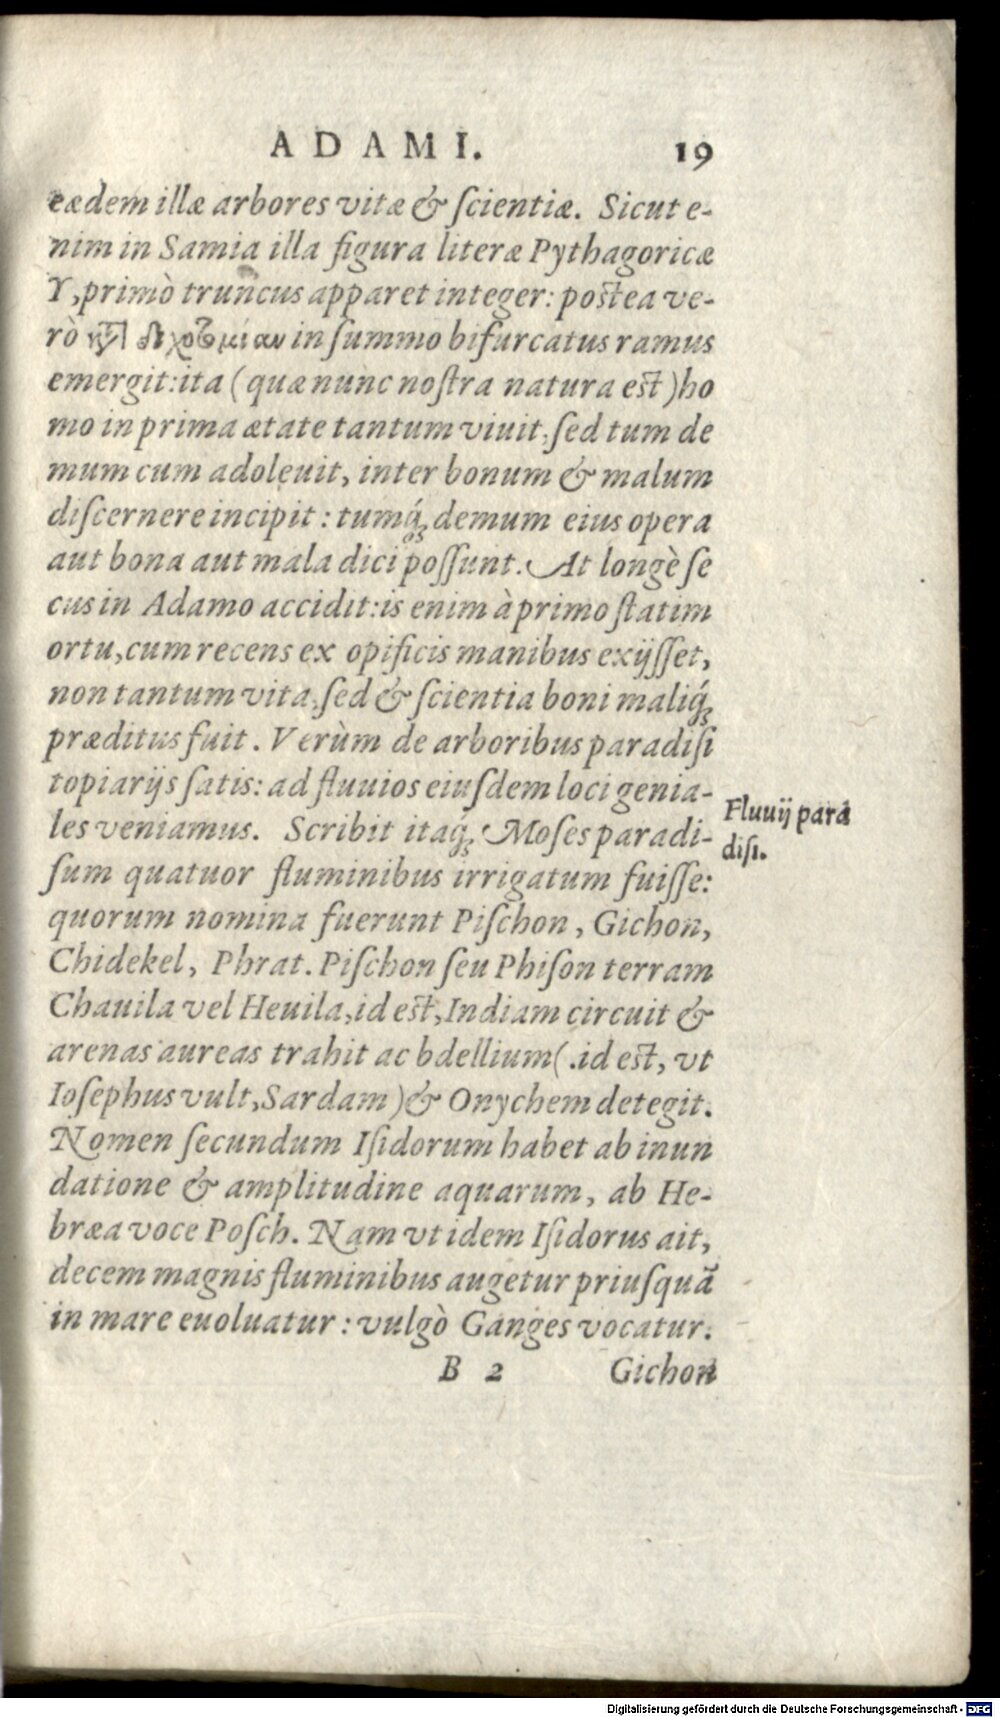 ADAMI. 19
eædem illæ arbores vitæ & ſcientiæ. Sicut e-
nim in Samia illa figura literæ Pythagoricæ
Y, primò truncus apparet integer: postea ve-
rò κατὰ διχοτομίαν in ſummo bifurcatus ramus
emergit: ita (quæ nunc noſtra natura est) ho
mo in prima ætate tantum viuit, ſed tum de
mum cum adoleuit, inter bonum & malum
diſcernere incipit: tumq́ꝫ demum eius opera
aut bona aut mala dici poſſunt. At longè ſe
cus in Adamo accidit: is enim à primo ſtatim
ortu, cum recens ex opificis manibus exijſſet,
non tantum vita, ſed & ſcientia boni maliq́ꝫ
præditus fuit. Verùm de arboribus paradiſi
topiarijs ſatis: ad fluuios eiuſdem loci genia-
les veniamus. Scribit itaq́ꝫ Moſes paradi-
ſum quatuor fluminibus irrigatum fuiſſe:
quorum nomina fuerunt Piſchon, Gichon,
Chidekel, Phrat. Piſchon ſeu Phiſon terram
Chauila vel Heuila, id est, Indiam circuit &
arenas aureas trahit ac bdellium (.id est, vt
Ioſephus vult, Sardam) & Onychem detegit.
Nomen ſecundum Iſidorum habet ab inun
datione & amplitudine aquarum, ab He-
bræa voce Poſch. Nam vt idem Iſidorus ait,
decem magnis fluminibus augetur priuſquã
in mare euoluatur: vulgò Ganges vocatur.
B 2 Gichon
Fluuij para
diſi.
Digitalisierung gefördert durch die Deutsche Forschungsgemeinschaft - DFG